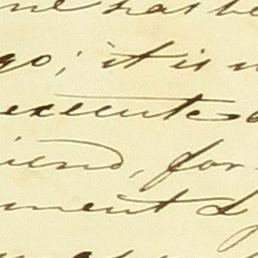 has be
go; it is
execute
iend, for
ment &